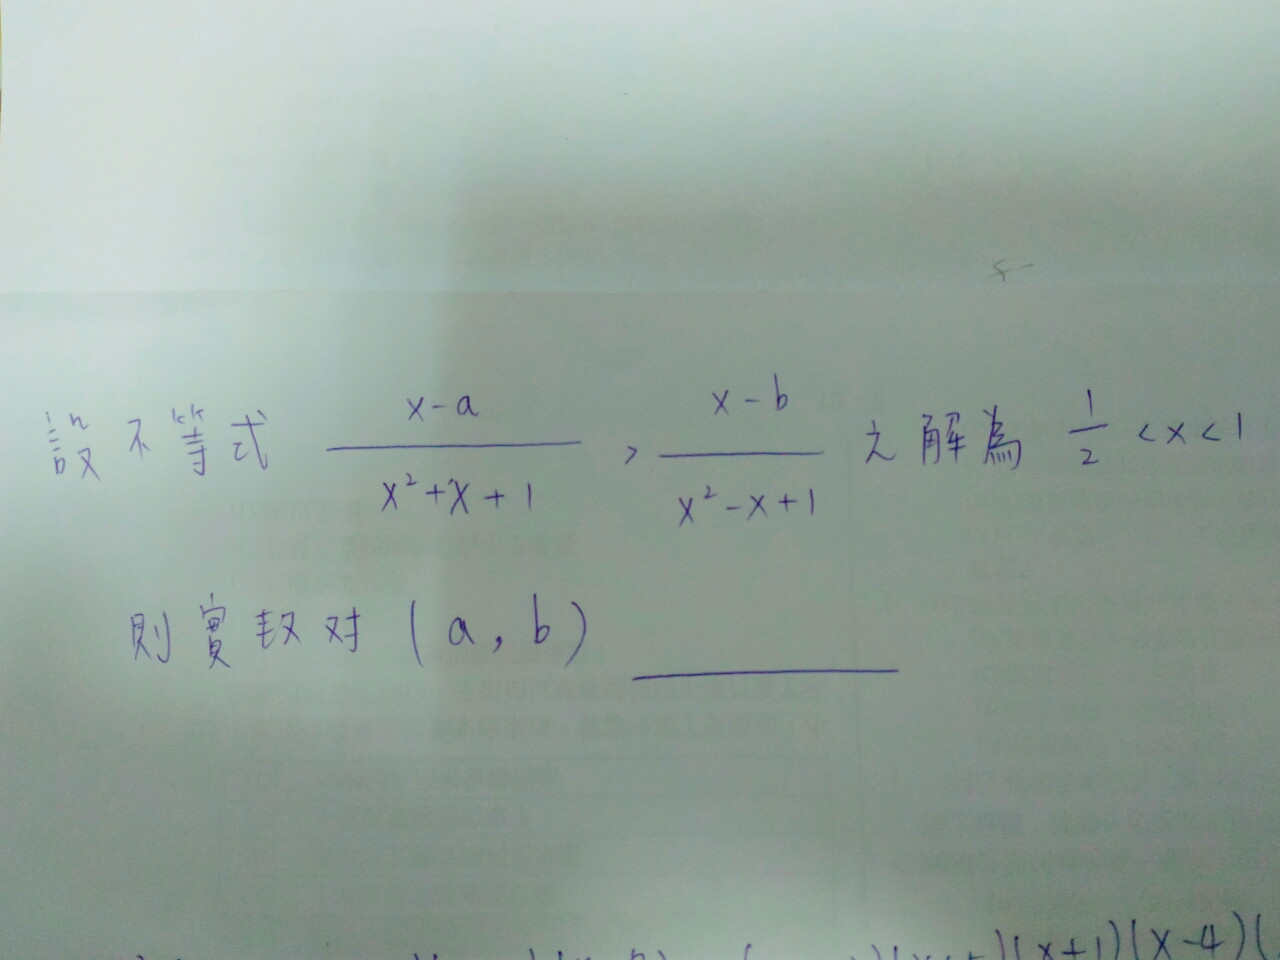 設不等式 x-a / x²+x+1 > x-b / x²-x+1 之解為 1/2 <x<1
則實数对 (a, b) ______
(x+1)(x-4)(